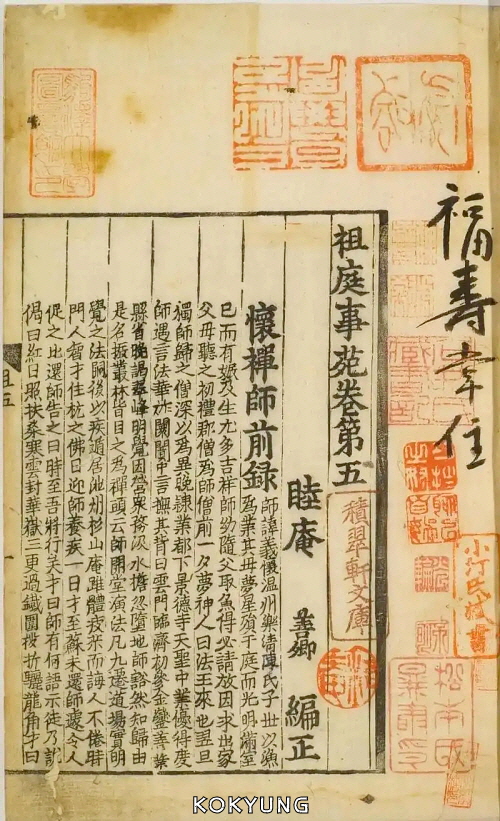 福壽
祖庭事苑卷第五
積翠軒文庫
小汀氏藏書
睦庵 善卿 編正
懷禪師前錄
師諱義懷溫州樂清陳氏子世以漁
為業其母夢星殞于庭而光明滿室
已而有娠及生尤多吉祥師幼隨父取魚得必請放因求出家
父母聽之初禮郡僧為師僧前一夕夢神人曰法王來也翌旦
獨師歸之僧深以為異晚隸業都下景德寺天聖中業優得度
師遇言法華於闤闠中言撫其背曰雲門臨濟初參金鑾善葉
縣省晚謁翠峰明覺因營衆務汲水擔忽墮地師豁然知歸由
是名振叢林皆目之為禪頭云師開堂演法凡九遷道場實明
覺之法嗣後以疾遁居池州杉山庵雖體而誨人不倦時
門人智才住杭之佛日迎師養疾一日才至蘇未還師遽令人
促之比還師告之曰時至吾將行矣才曰師有何語示徒乃說
偈曰紅日照扶桑寒雲封華嶽三更過鐵圍拶折驪龍角才曰
祖五
KOKYUNG